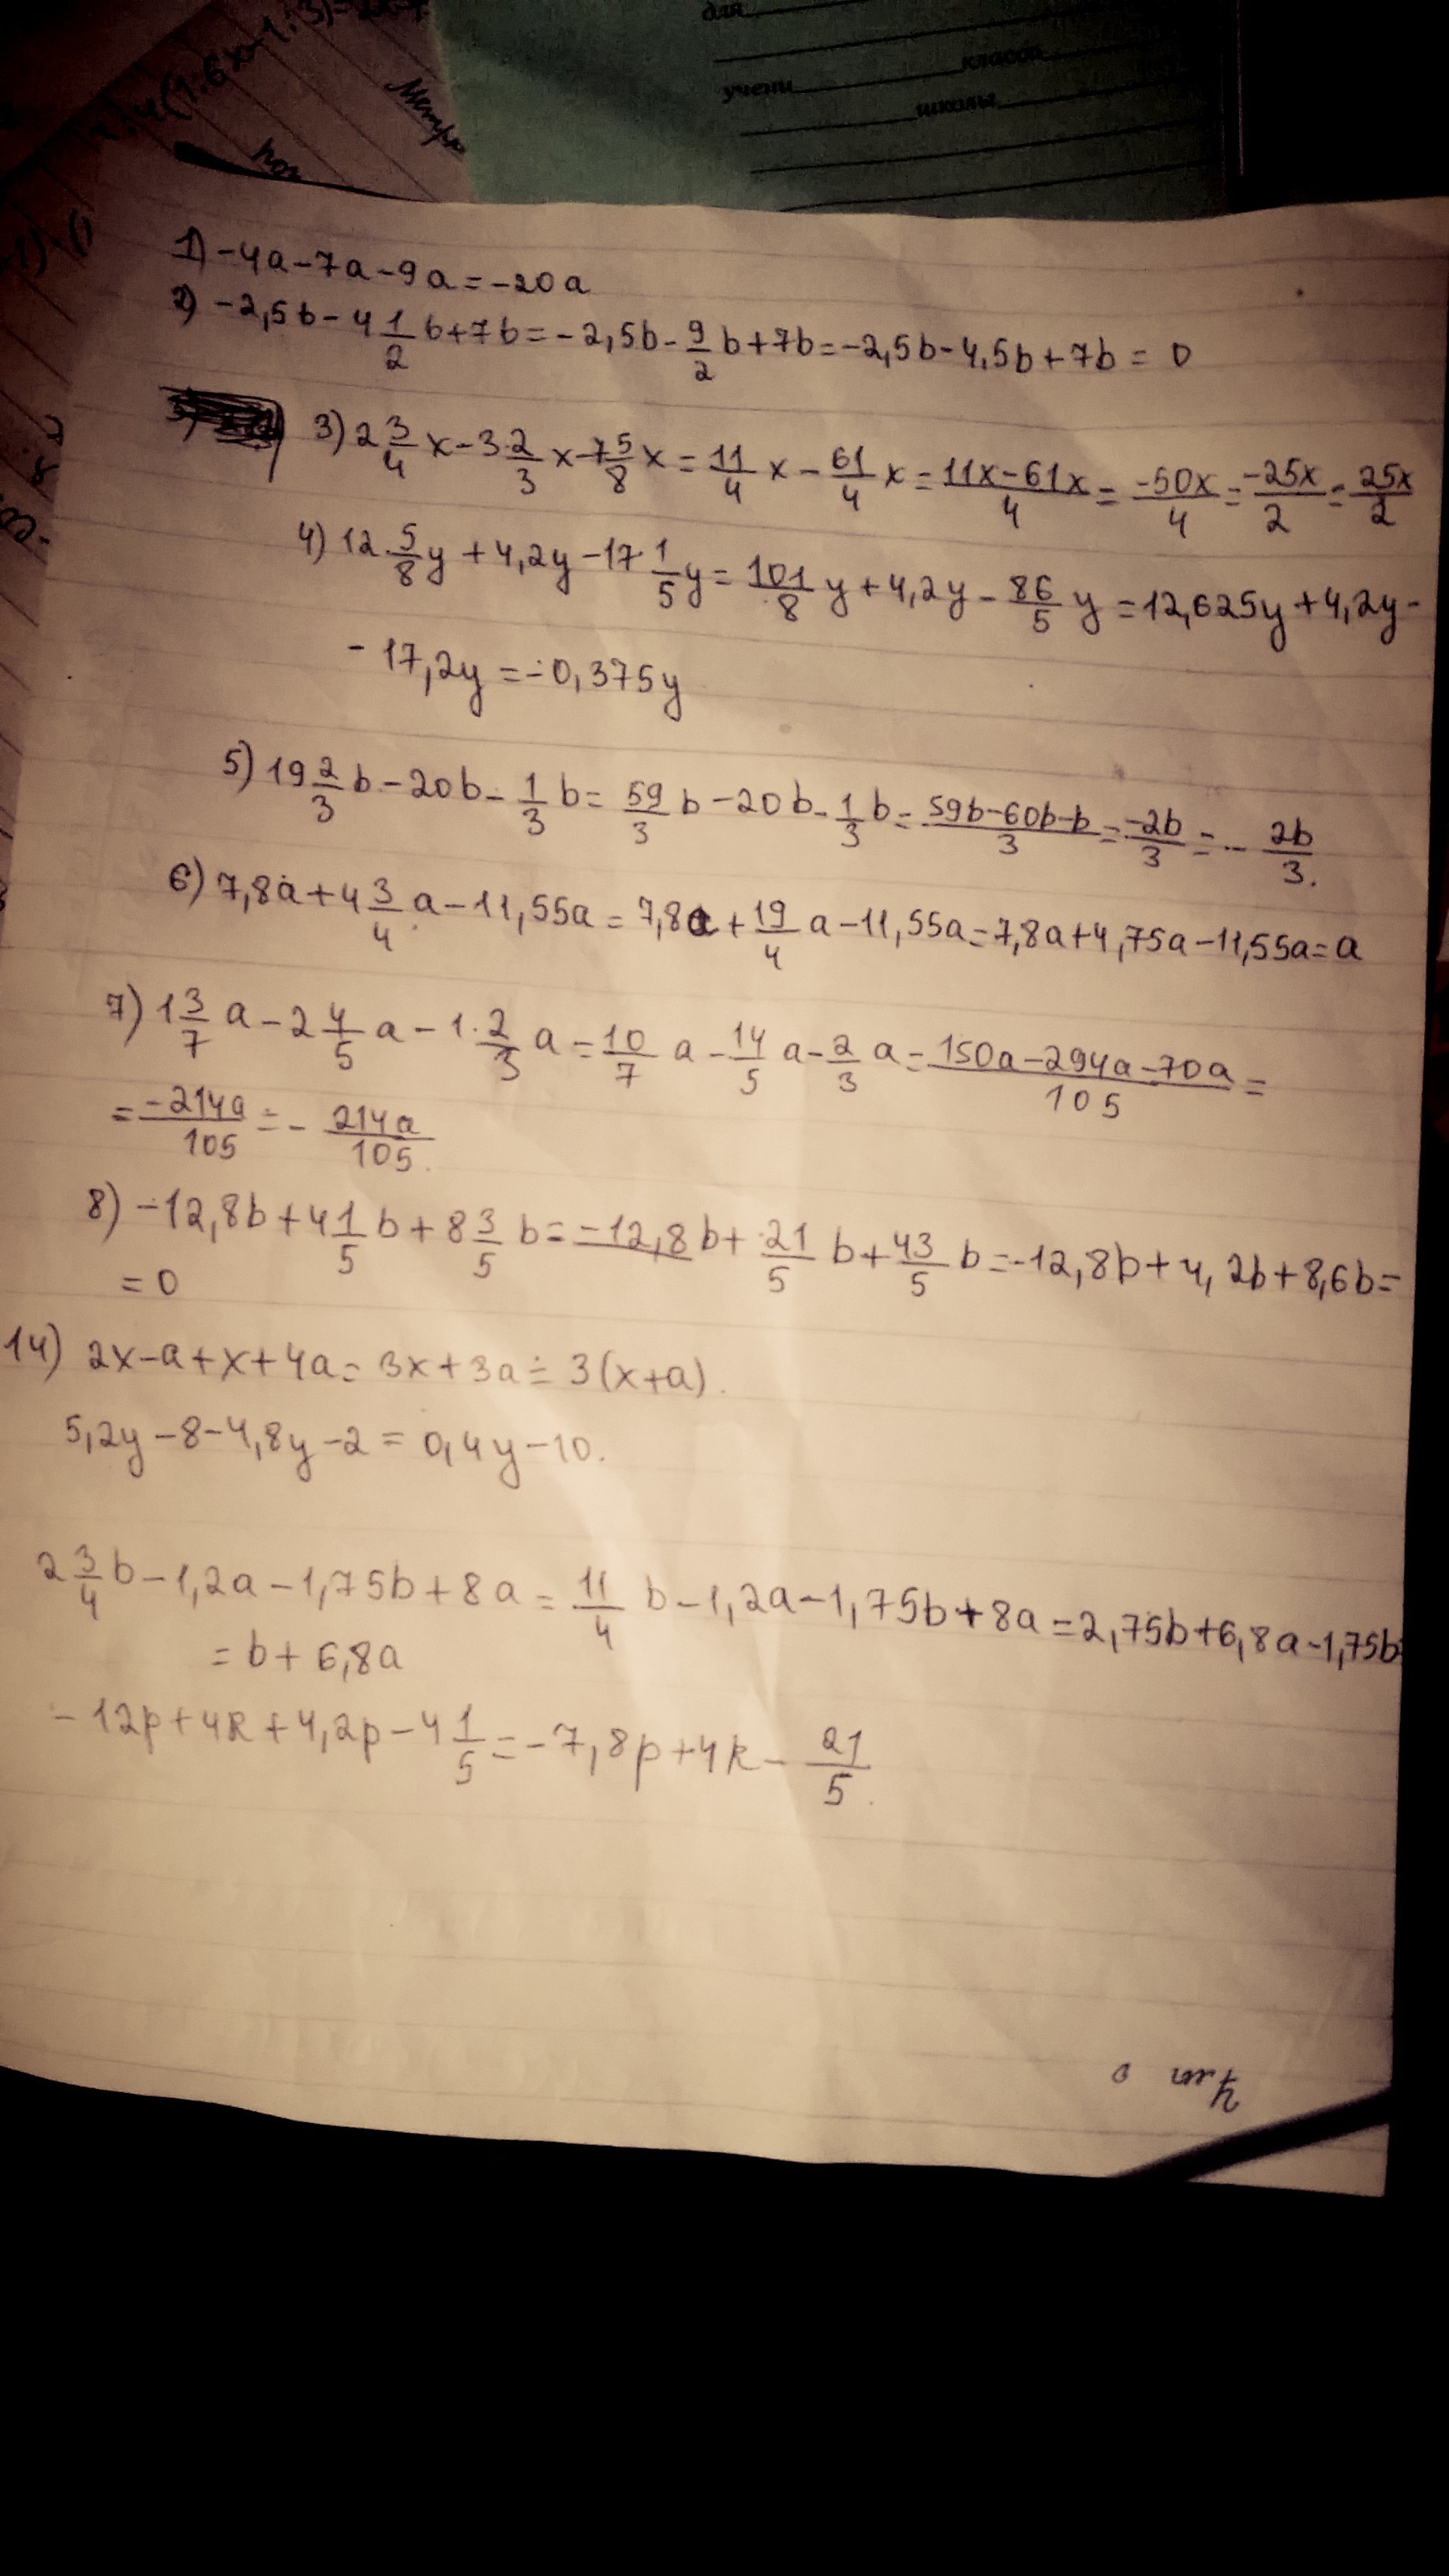 для
класса
учени
школы
1) -4a-7a-9a=-20a
2) -2,5b-4 1/2 b+7b=-2,5b-9/2 b+7b=-2,5b-4,5b+7b=0
3) 2 3/4 x-3·2/3 x-75/8 x=11/4 x-61/4 x=(11x-61x)/4=-50x/4=-25x/2=25x/2
4) 12·5/8 y+4,2y-17·1/5 y=101/8 y+4,2y-86/5 y=12,625y+4,2y-
-17,2y=-0,375y
5) 19 2/3 b-20b-1/3 b=59/3 b-20b-1/3 b=(59b-60b-b)/3=-2b/3=-2b/3.
6) 7,8a+4 3/4 a-11,55a=7,8a+19/4 a-11,55a=7,8a+4,75a-11,55a=a
7) 1 3/7 a-2 4/5 a-1·2/3 a=10/7 a-14/5 a-2/3 a=(150a-294a-70a)/105=
=-214a/105=-214a/105.
8) -12,8b+4 1/5 b+8 3/5 b=-12,8b+21/5 b+43/5 b=-12,8b+4,2b+8,6b=
=0
14) 2x-a+x+4a=3x+3a=3(x+a).
5,2y-8-4,8y-2=0,4y-10.
2 3/4 b-1,2a-1,75b+8a=11/4 b-1,2a-1,75b+8a=2,75b+6,8a-1,75b=
=b+6,8a
-12p+4k+4,2p-4 1/5=-7,8p+4k-21/5.